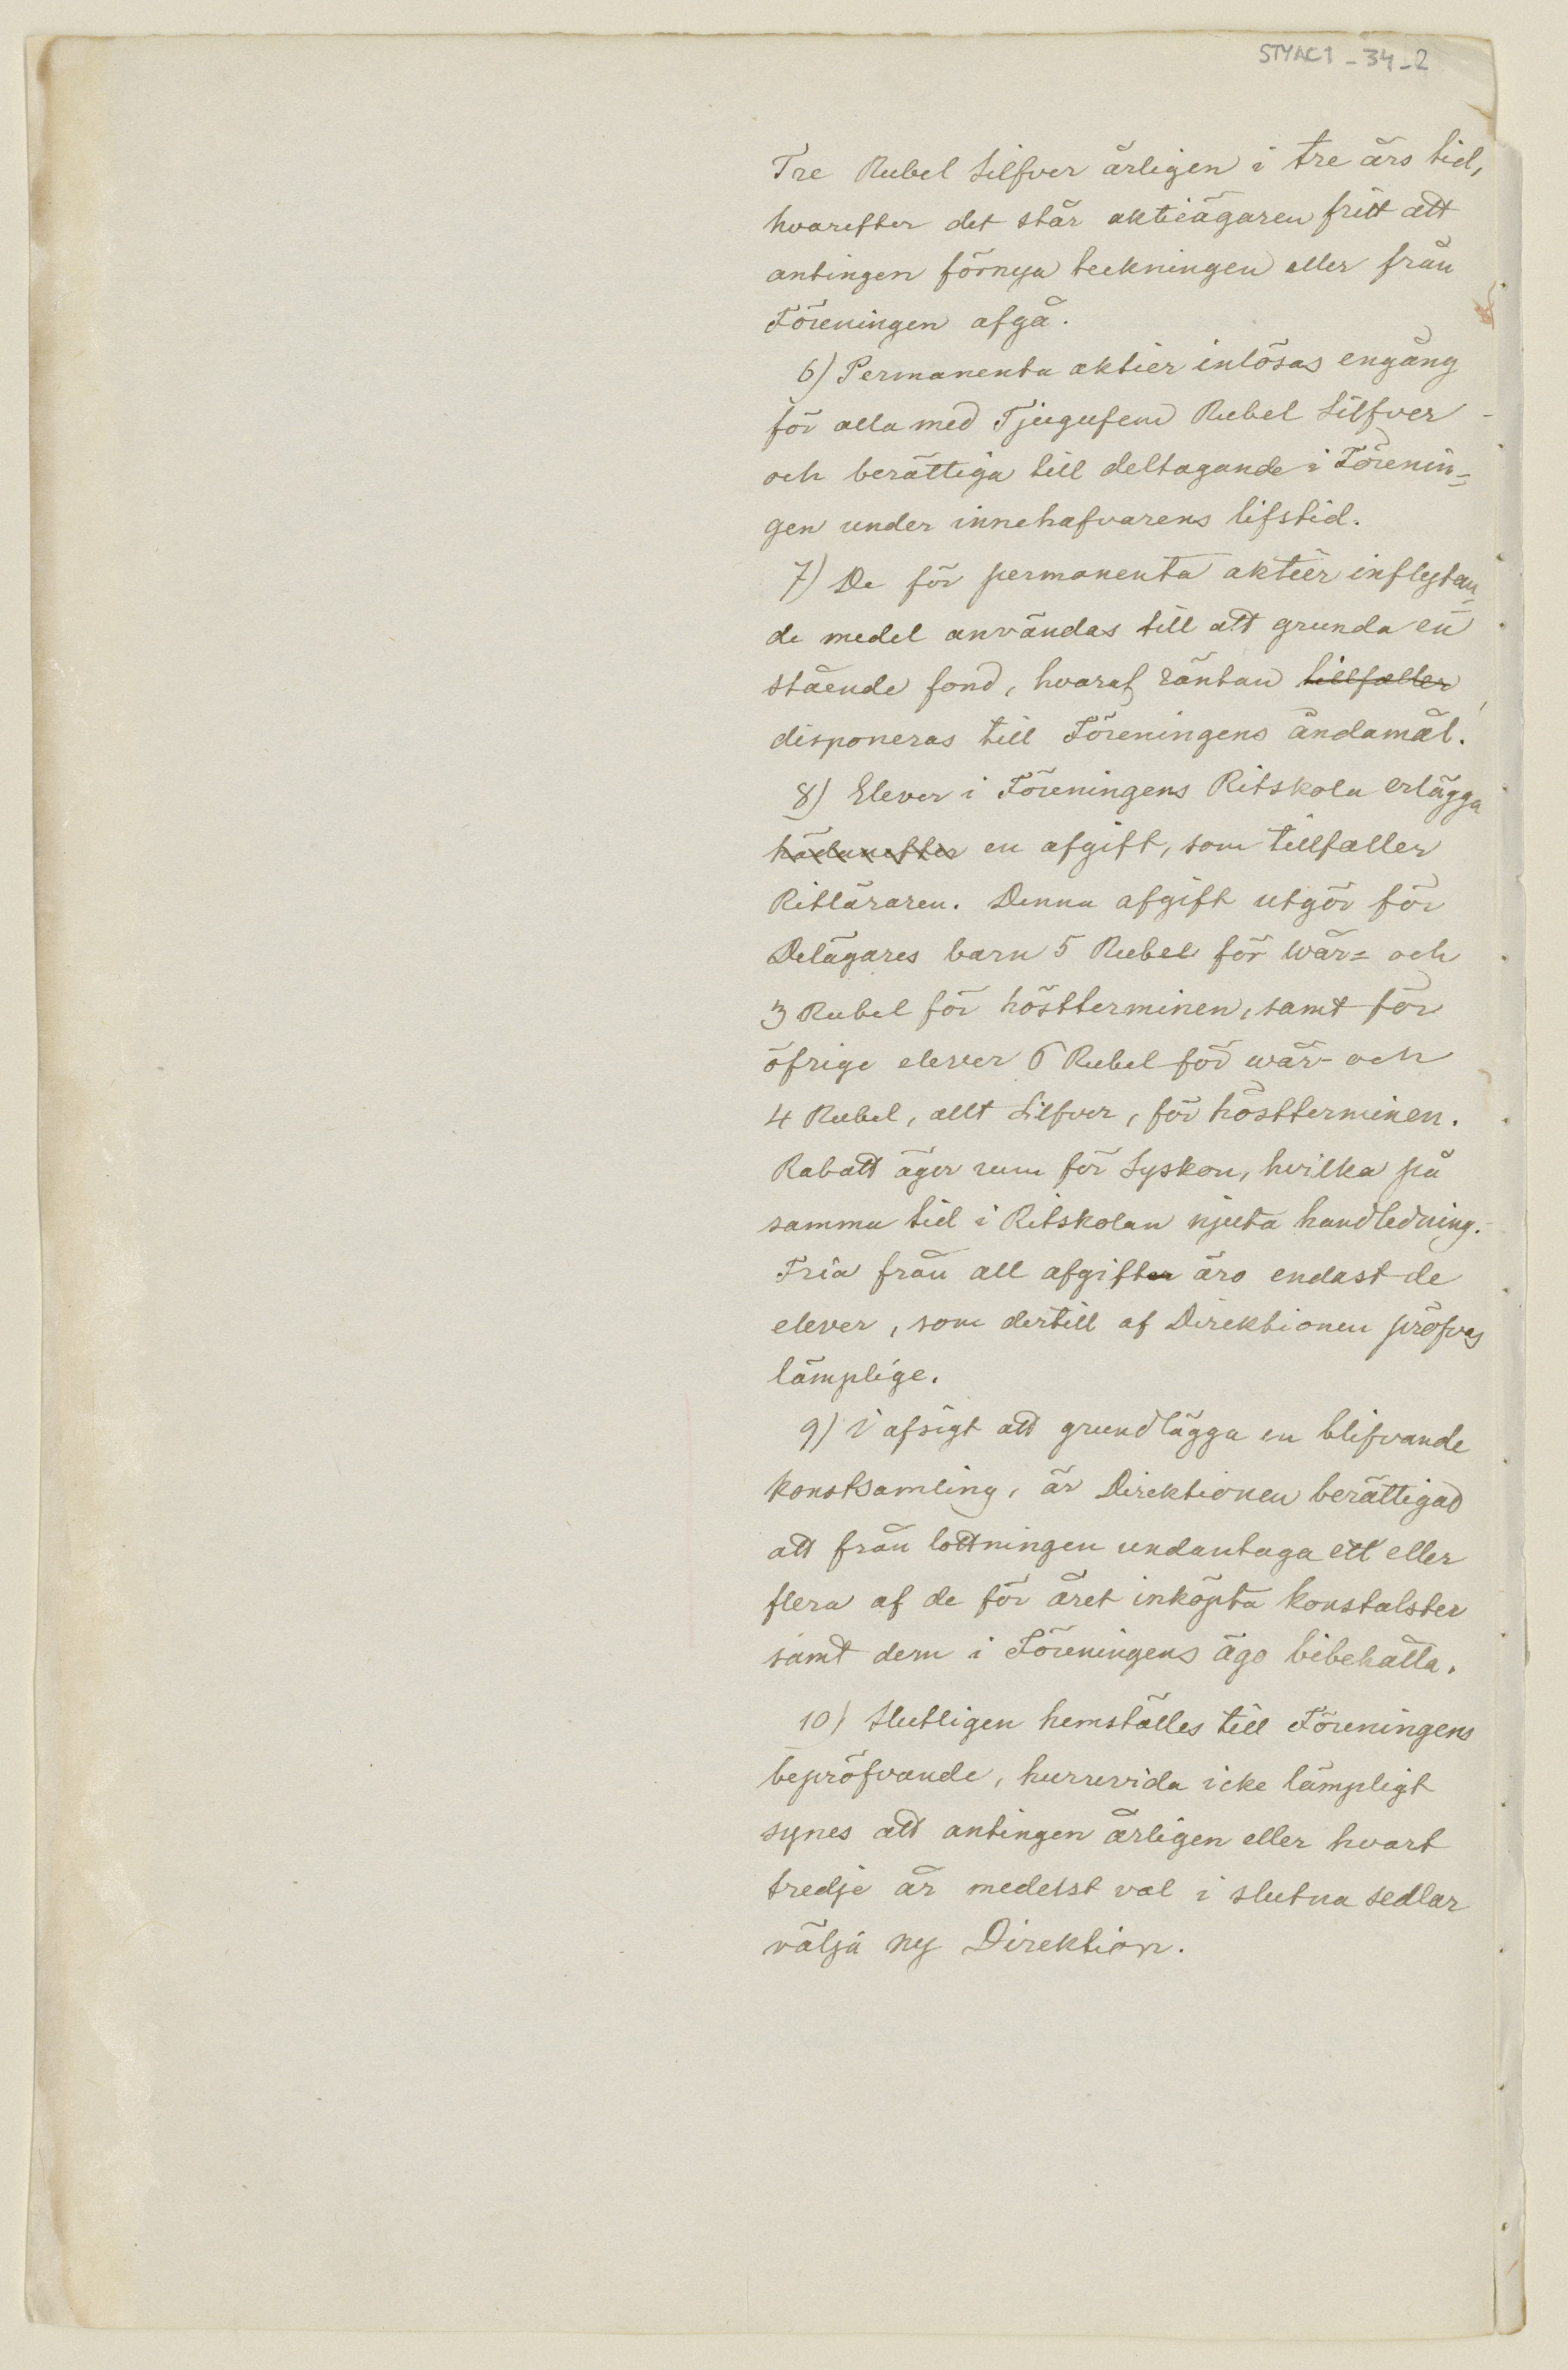 STYAC1_34_2
Tre Rubel Silfver årligen i tre års tid,
hvarefter det står aktieägaren fritt att
antingen förnya teckningen eller från
Föreningen afgå.
6) Permanenta aktier inlösas engång
för alla med Tjugufem Rubel Silfver
och berättiga till deltagande i Förenin=
gen under innehafvarens lifstid.
7) De för permanenta aktier inflytan=
de medel användas till att grunda en
stående fond, hvaraf räntan tillfaller
disponeras till Föreningens ändamål.
8) Elever i Föreningens Ritskola erlägga
hädanefter en afgift, som tillfaller
Ritläraren. Denna afgift utgör för
Delägares barn 5 Rubel för wår= och
3 Rubel för höstterminen, samt för
öfrige elever 6 Rubel för wår- och
4 Rubel, allt Silfver, för höstterminen.
Rabatt äger rum för Syskon, hvilka på
samma tid i Ritskolan njuta handledning.
Fria från all afgifter äro endast de
elever, som dertill af Direktionen pröfvas
lämplige.
9) I afsigt att grundlägga en blifvande
konstsamling, är Direktionen berättigad
att från lottningen undantaga ett eller
flera af de för året inköpta konstalster
samt dem i Föreningens ägo bibehålla.
10) Slutligen hemställes till Föreningens
bepröfvande, huruvida icke lämpligt
synes att antingen årligen eller hvart
tredje år medelst val i slutna sedlar
välja ny Direktion.